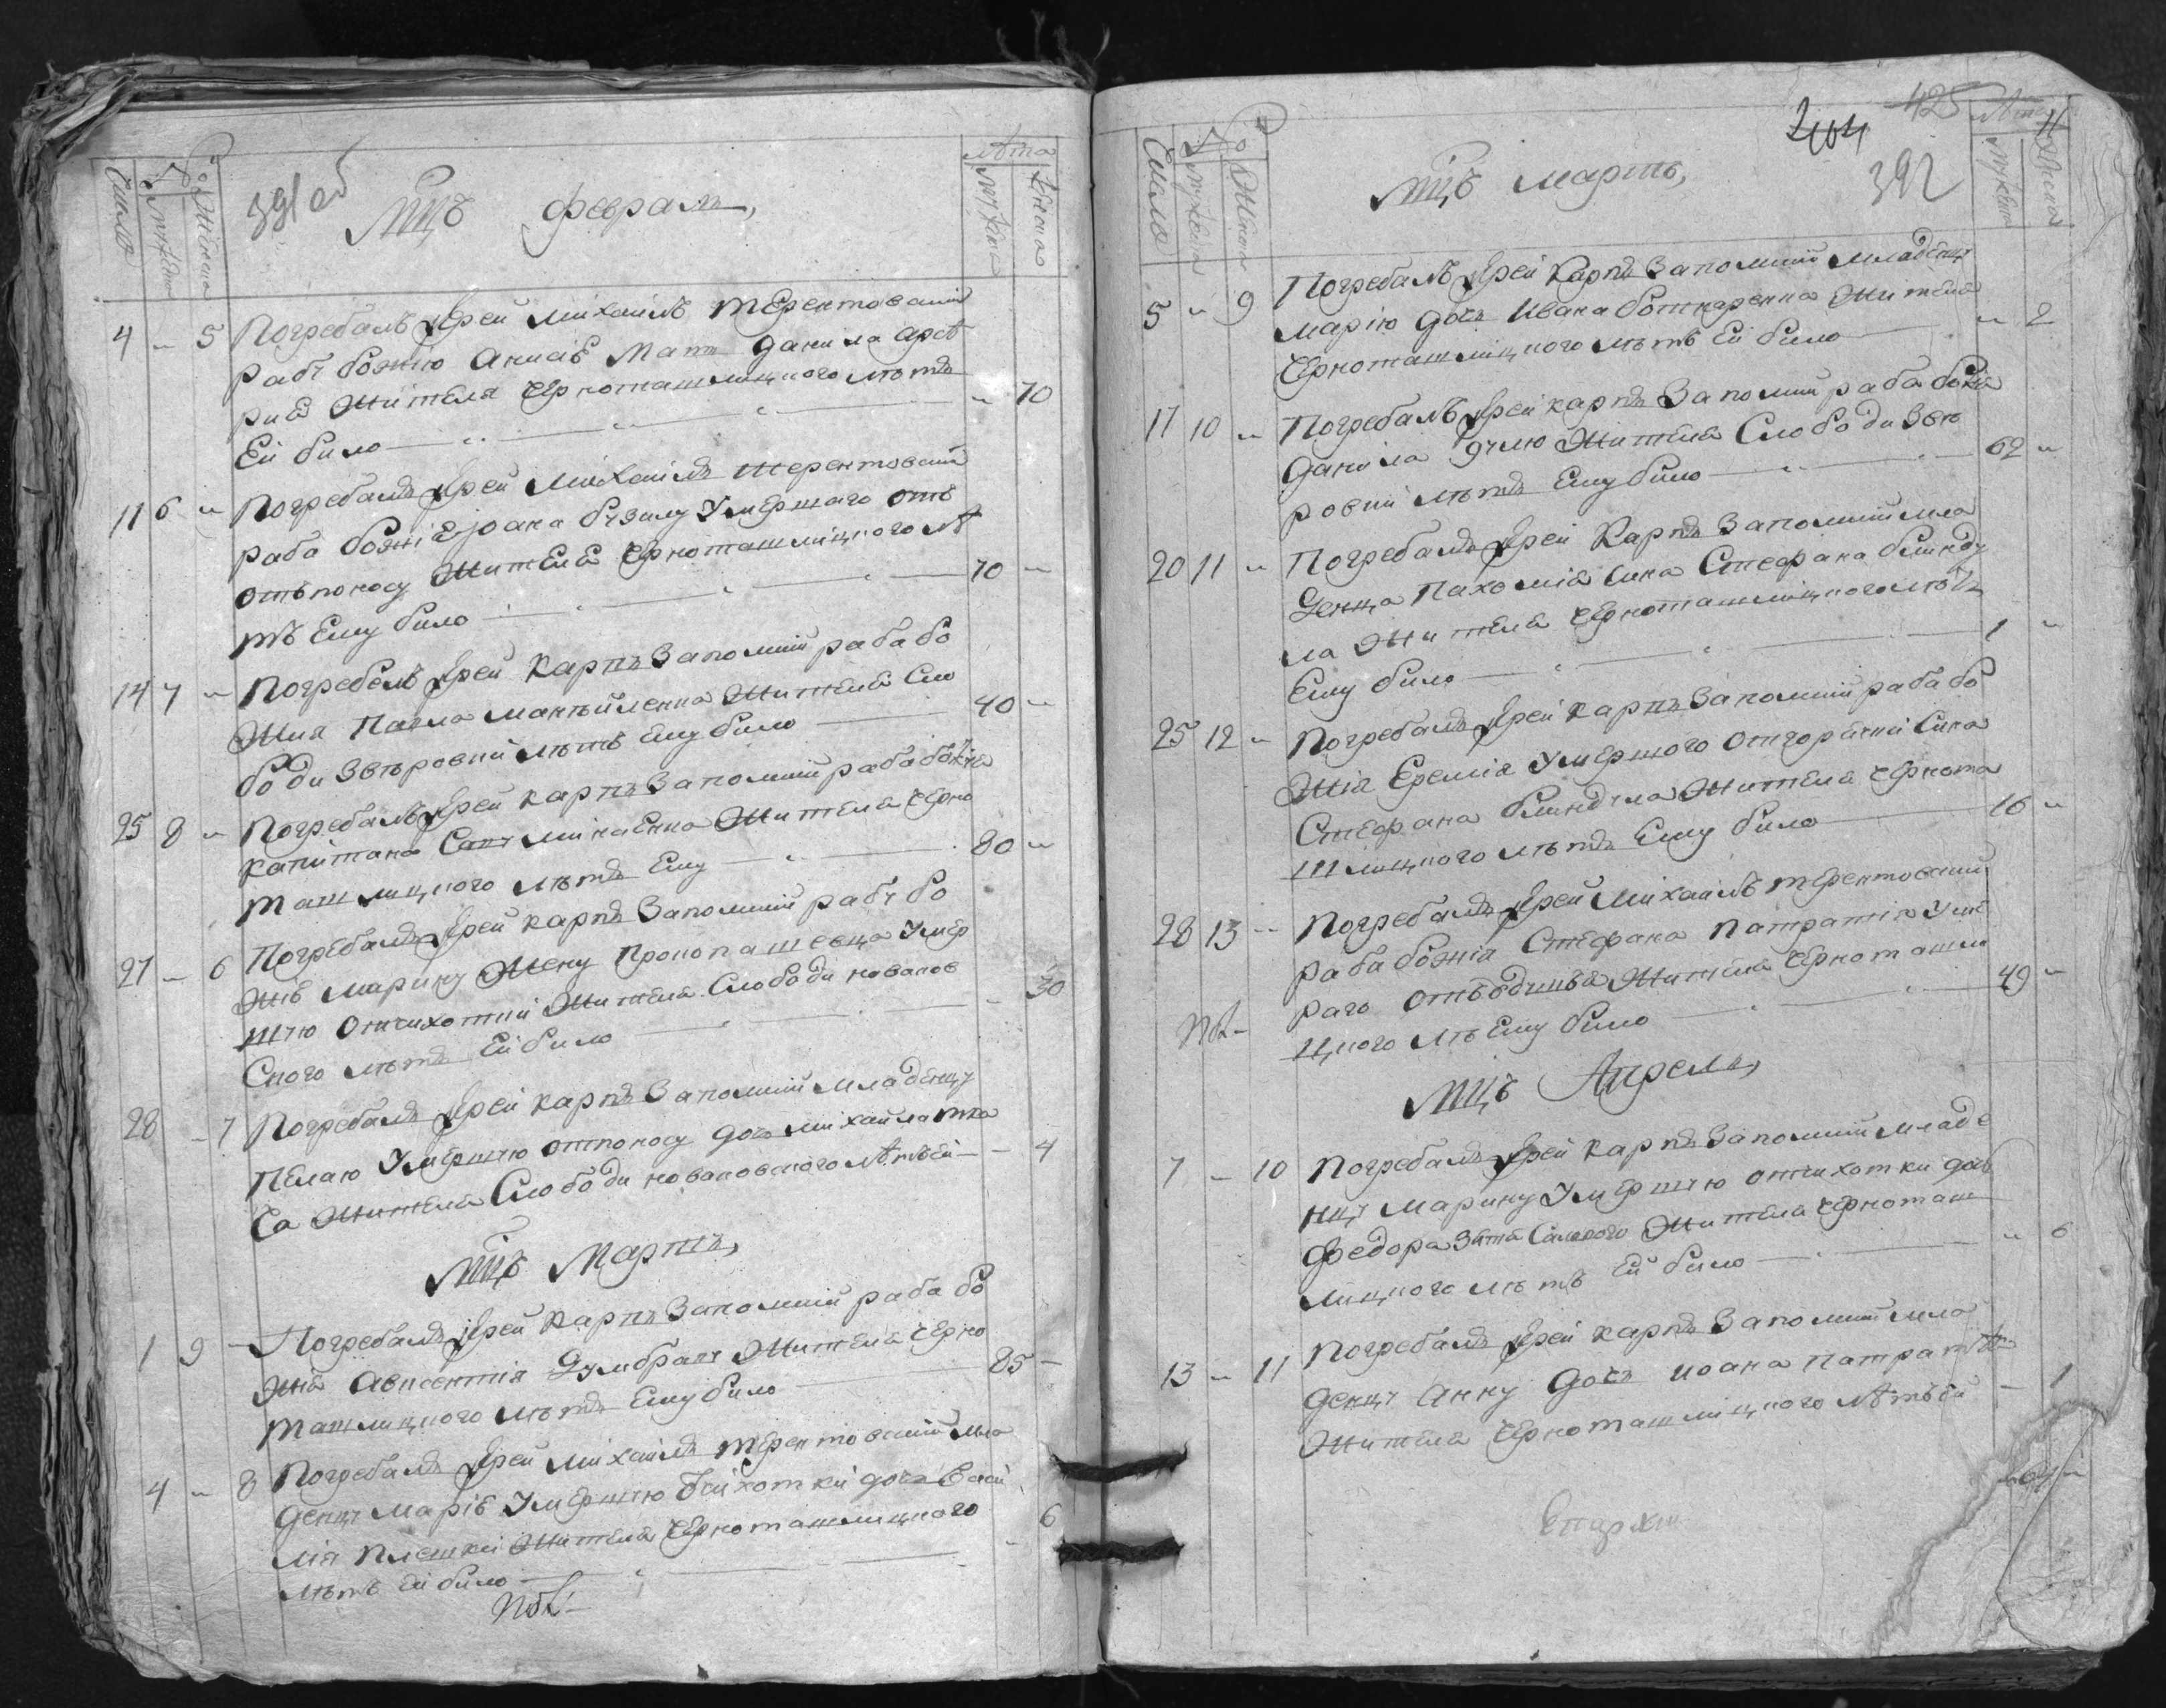 391 об
Мцъ февраль,
Число
Мужеска
Женска
Лѣта
Мужеска
Женска
4 - 5 Погребалъ Ієрей Михаилъ Терентовский
рабу божию Мать Данила
Жителя Черноташлицкого лѣтъ
Ей било - 70
11 6 - Погребалъ Ієрей Михаилъ Терентовский
раба божіе Іоана Умершаго отъ
отъ поносу Жителе Черноташлицкого лѣ
тъ Ему било 70 -
14 7 - Погребалъ Ієрей Карпъ Заполский раба бо
жия Павла Мантыйленка Жителя Сло
боди Звѣровки лѣтъ ему било 40 -
25 8 - Погребалъ Ієрей Карпъ Заполский раба божія
Капитана Жителя Черно
ташлицкого лѣтъ Ему 80 -
27 - 6 Погребалъ Ієрей Карпъ Заполский рабу бо
жію Марину Жену Прокопа Шевца Умер
шую отчихотки Жителя Слободи новапов
ского лѣтъ Ей било - 30
28 - 7 Погребалъ Ієрей Карпъ Заполский младенцу
Пелаю Умершую отпоносу дочь Михайла Тка
ча Жителя Слободи новаповского лѣтъ Ей - 4
Мцъ Мартъ,
1 9 - Погребалъ Ієрей Карпъ Заполский раба бо
жія Авксентія Думбрану Жителя Черно
ташлицкого лѣтъ Ему било 85 -
4 - 8 Погребалъ Ієрей Михаилъ Терентовский мла
денцу Маріе Умершую отчихотки дочь Васи
лія Плешки Жителя Черноташлицкого
лѣтъ Ей било - 6
425
404
392
Мцъ мартъ,
Число
Мужеска
Женска
Лѣта
Мужеска
Женска
5 - 9 Погребалъ Ієрей Карпъ Заполский младенцу
Марію дочь Ивана Ботнаренка Жителя
Черноташлицкого лѣтъ Ей било - 2
17 10 - Погребалъ Ієрей Карпъ Заполский раба божія
Данила Жителя Слободи Звѣ
ровки лѣтъ Ему било 62 -
20 11 - Погребалъ Ієрей Карпъ Заполский мла
денца Пахомія Сина Стефана Блинду
ла Жителя Черноташлицкого лѣтъ
Ему било 1 -
25 12 - Погребалъ Ієрей Карпъ Заполский раба бо
жія Еремія Умершого отгорячки Сина
Стефана Блиндула Жителя Чернота
шлицкого лѣтъ Ему било 16 -
28 13 - Погребалъ Ієрей Михаилъ Терентовский
раба божія Стефана Патратія Уме
раго Жителя Черноташли
цкого лѣ Ему било 49 -
Мцъ Апрель,
7 - 10 Погребалъ Ієрей Карпъ Заполский младе
нцу Марину Умершую отчихотки дочь
Федора Зятя Жителя Черноташ
лицкого лѣтъ Ей било - 6
13 - 11 Погребалъ Ієрей Карпъ Заполский мла
денцу Анну дочь Иоана Патратія
Жителя Черноташлицкого лѣтъ Ей - 1